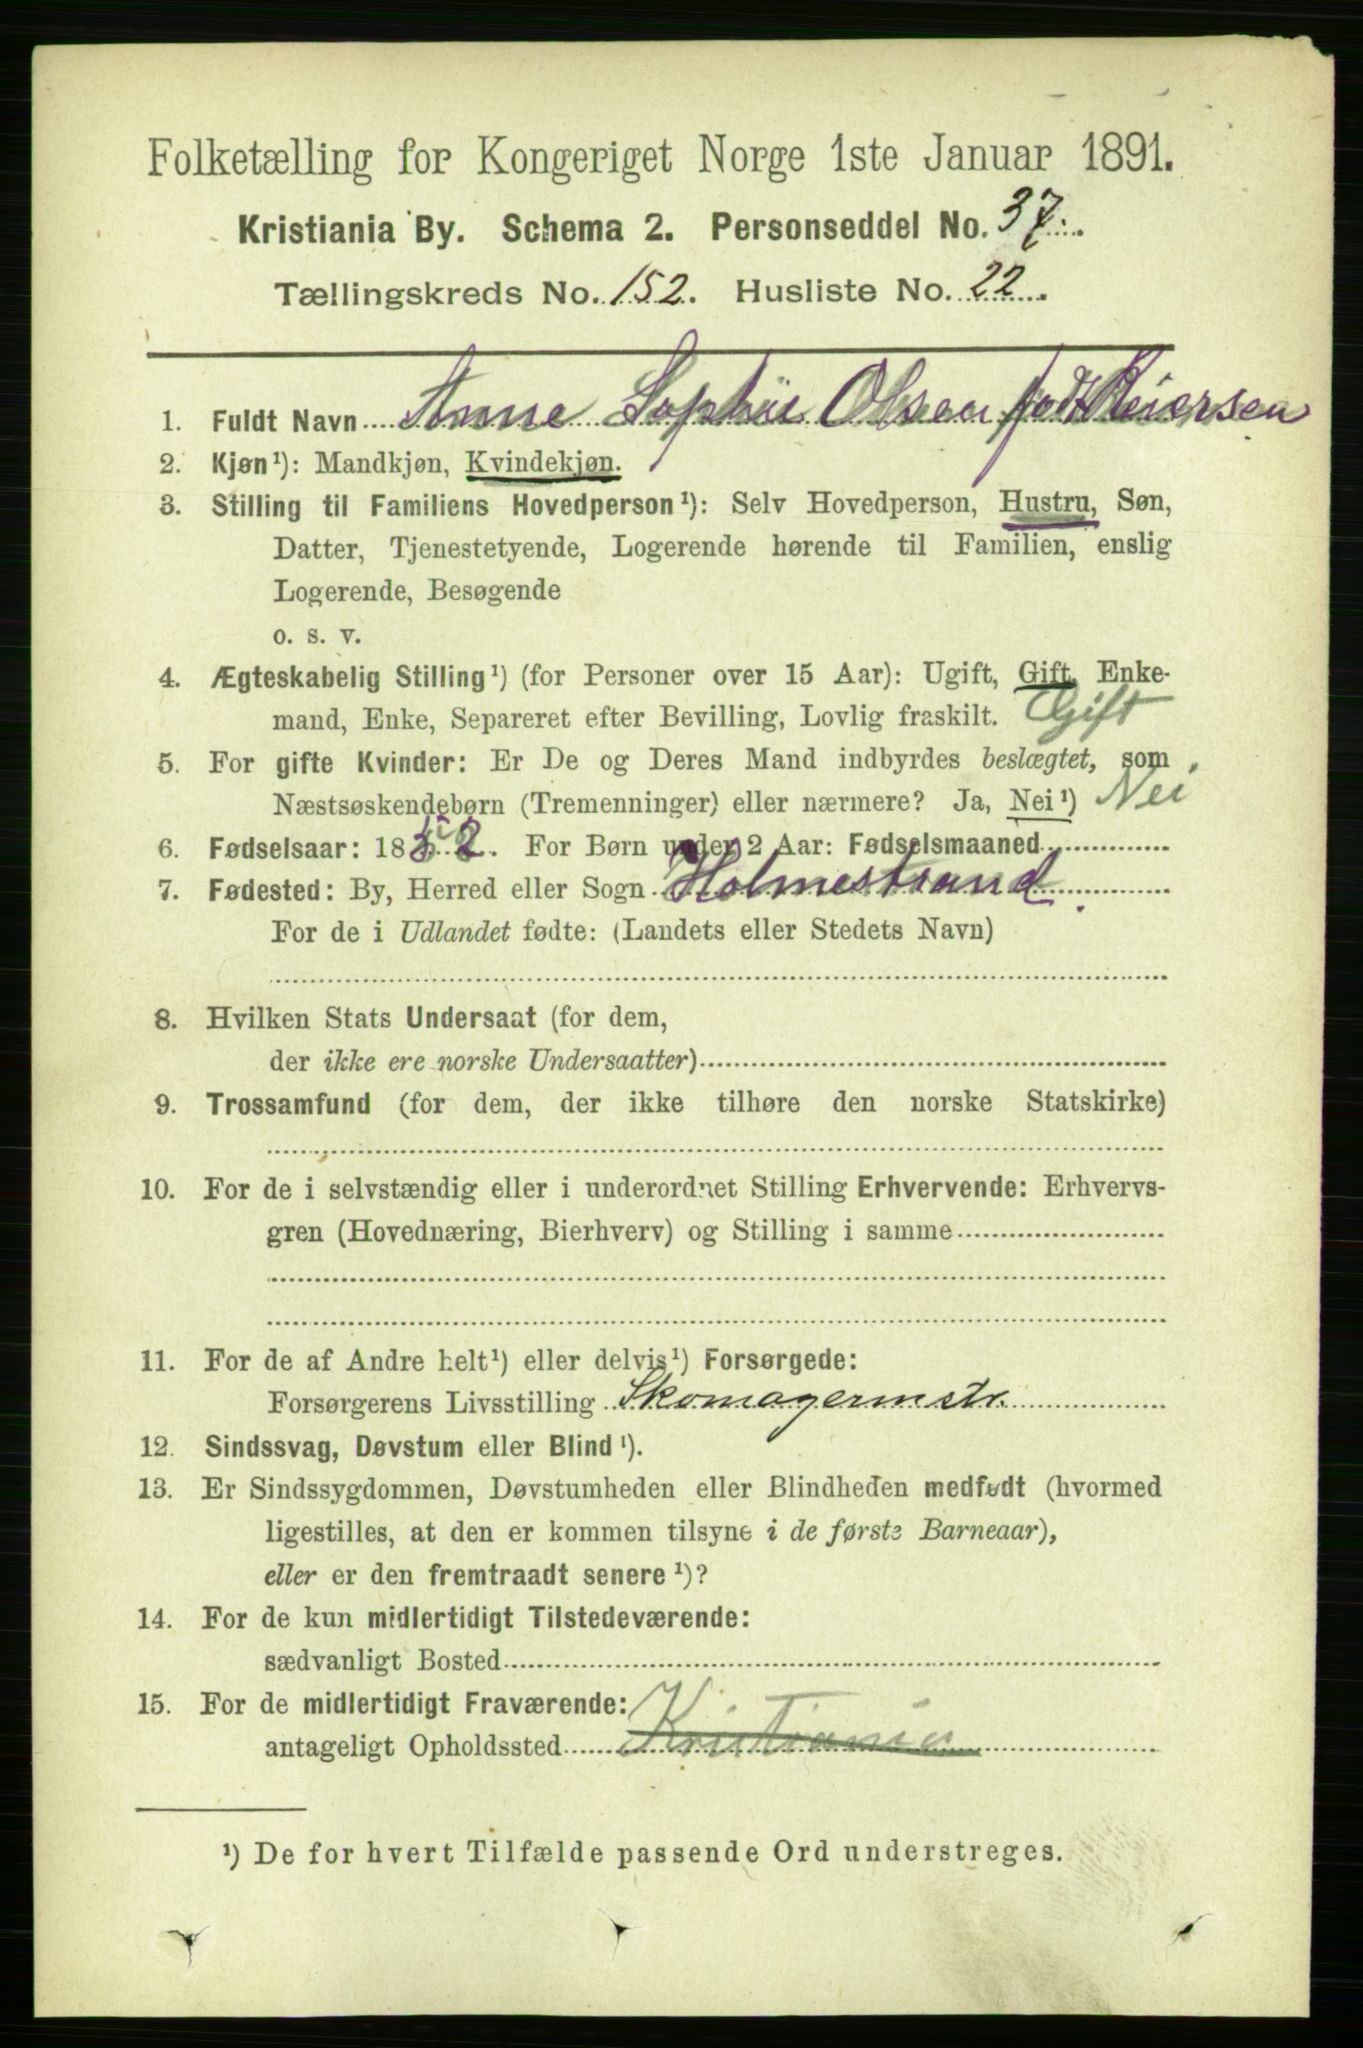 Folketælling for Kongeriget Norge 1ste Januar 1891.
Kristiania By. Schema 2. Personseddel No. 37.
Tællingskreds No. 152. Husliste No. 22.
1. Fuldt Navn Anne Sophie Olsen født Reiersen
2. Kjøn¹): Mandkjøn, Kvindekjøn.
3. Stilling til Familiens Hovedperson¹): Selv Hovedperson, Hustru, Søn,
Datter, Tjenestetyende, Logerende hørende til Familien, enslig
Logerende, Besøgende
o. s. v.
4. Ægteskabelig Stilling¹) (for Personer over 15 Aar): Ugift, Gift, Enke-
mand, Enke, Separeret efter Bevilling, Lovlig fraskilt. Gift
5. For gifte Kvinder: Er De og Deres Mand indbyrdes beslægtet, som
Næstsøskendebørn (Tremenninger) eller nærmere? Ja, Nei¹) Nei
6. Fødselsaar: 18 2. For Børn under 2 Aar: Fødselsmaaned
7. Fødested: By, Herred eller Sogn Holmestrand
For de i Udlandet fødte: (Landets eller Stedets Navn)
8. Hvilken Stats Undersaat (for dem,
der ikke ere norske Undersaatter)
9. Trossamfund (for dem, der ikke tilhøre den norske Statskirke)
10. For de i selvstændig eller i underordnet Stilling Erhvervende: Erhvervs-
gren (Hovednæring, Bierhverv) og Stilling i samme
11. For de af Andre helt¹) eller delvis¹) Forsørgede:
Forsørgerens Livsstilling Skomagermstr.
12. Sindssvag, Døvstum eller Blind¹).
13. Er Sindssygdommen, Døvstumheden eller Blindheden medfødt (hvormed
ligestilles, at den er kommen tilsyne i de første Barneaar),
eller er den fremtraadt senere¹)?
14. For de kun midlertidigt Tilstedeværende:
sædvanligt Bosted
15. For de midlertidigt Fraværende:
antageligt Opholdssted Kristiania
¹) De for hvert Tilfælde passende Ord understreges.